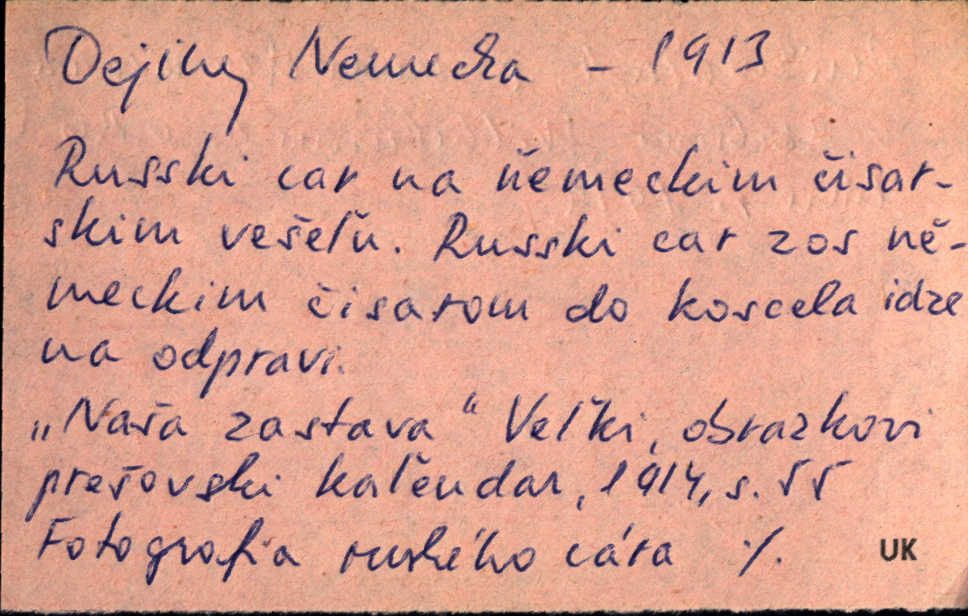 Dejiny Nemecka - 1913
Russki car na ňemeckim čisar-
skim vešeľu. Russki car zos ňe-
meckim čisarom do koscela idze
na odpravi.
„Naša zastava“ Veľki, obrazkovi
prešovski kaľendar, 1914, s. 55
Fotografia ruského cára ./.
UK